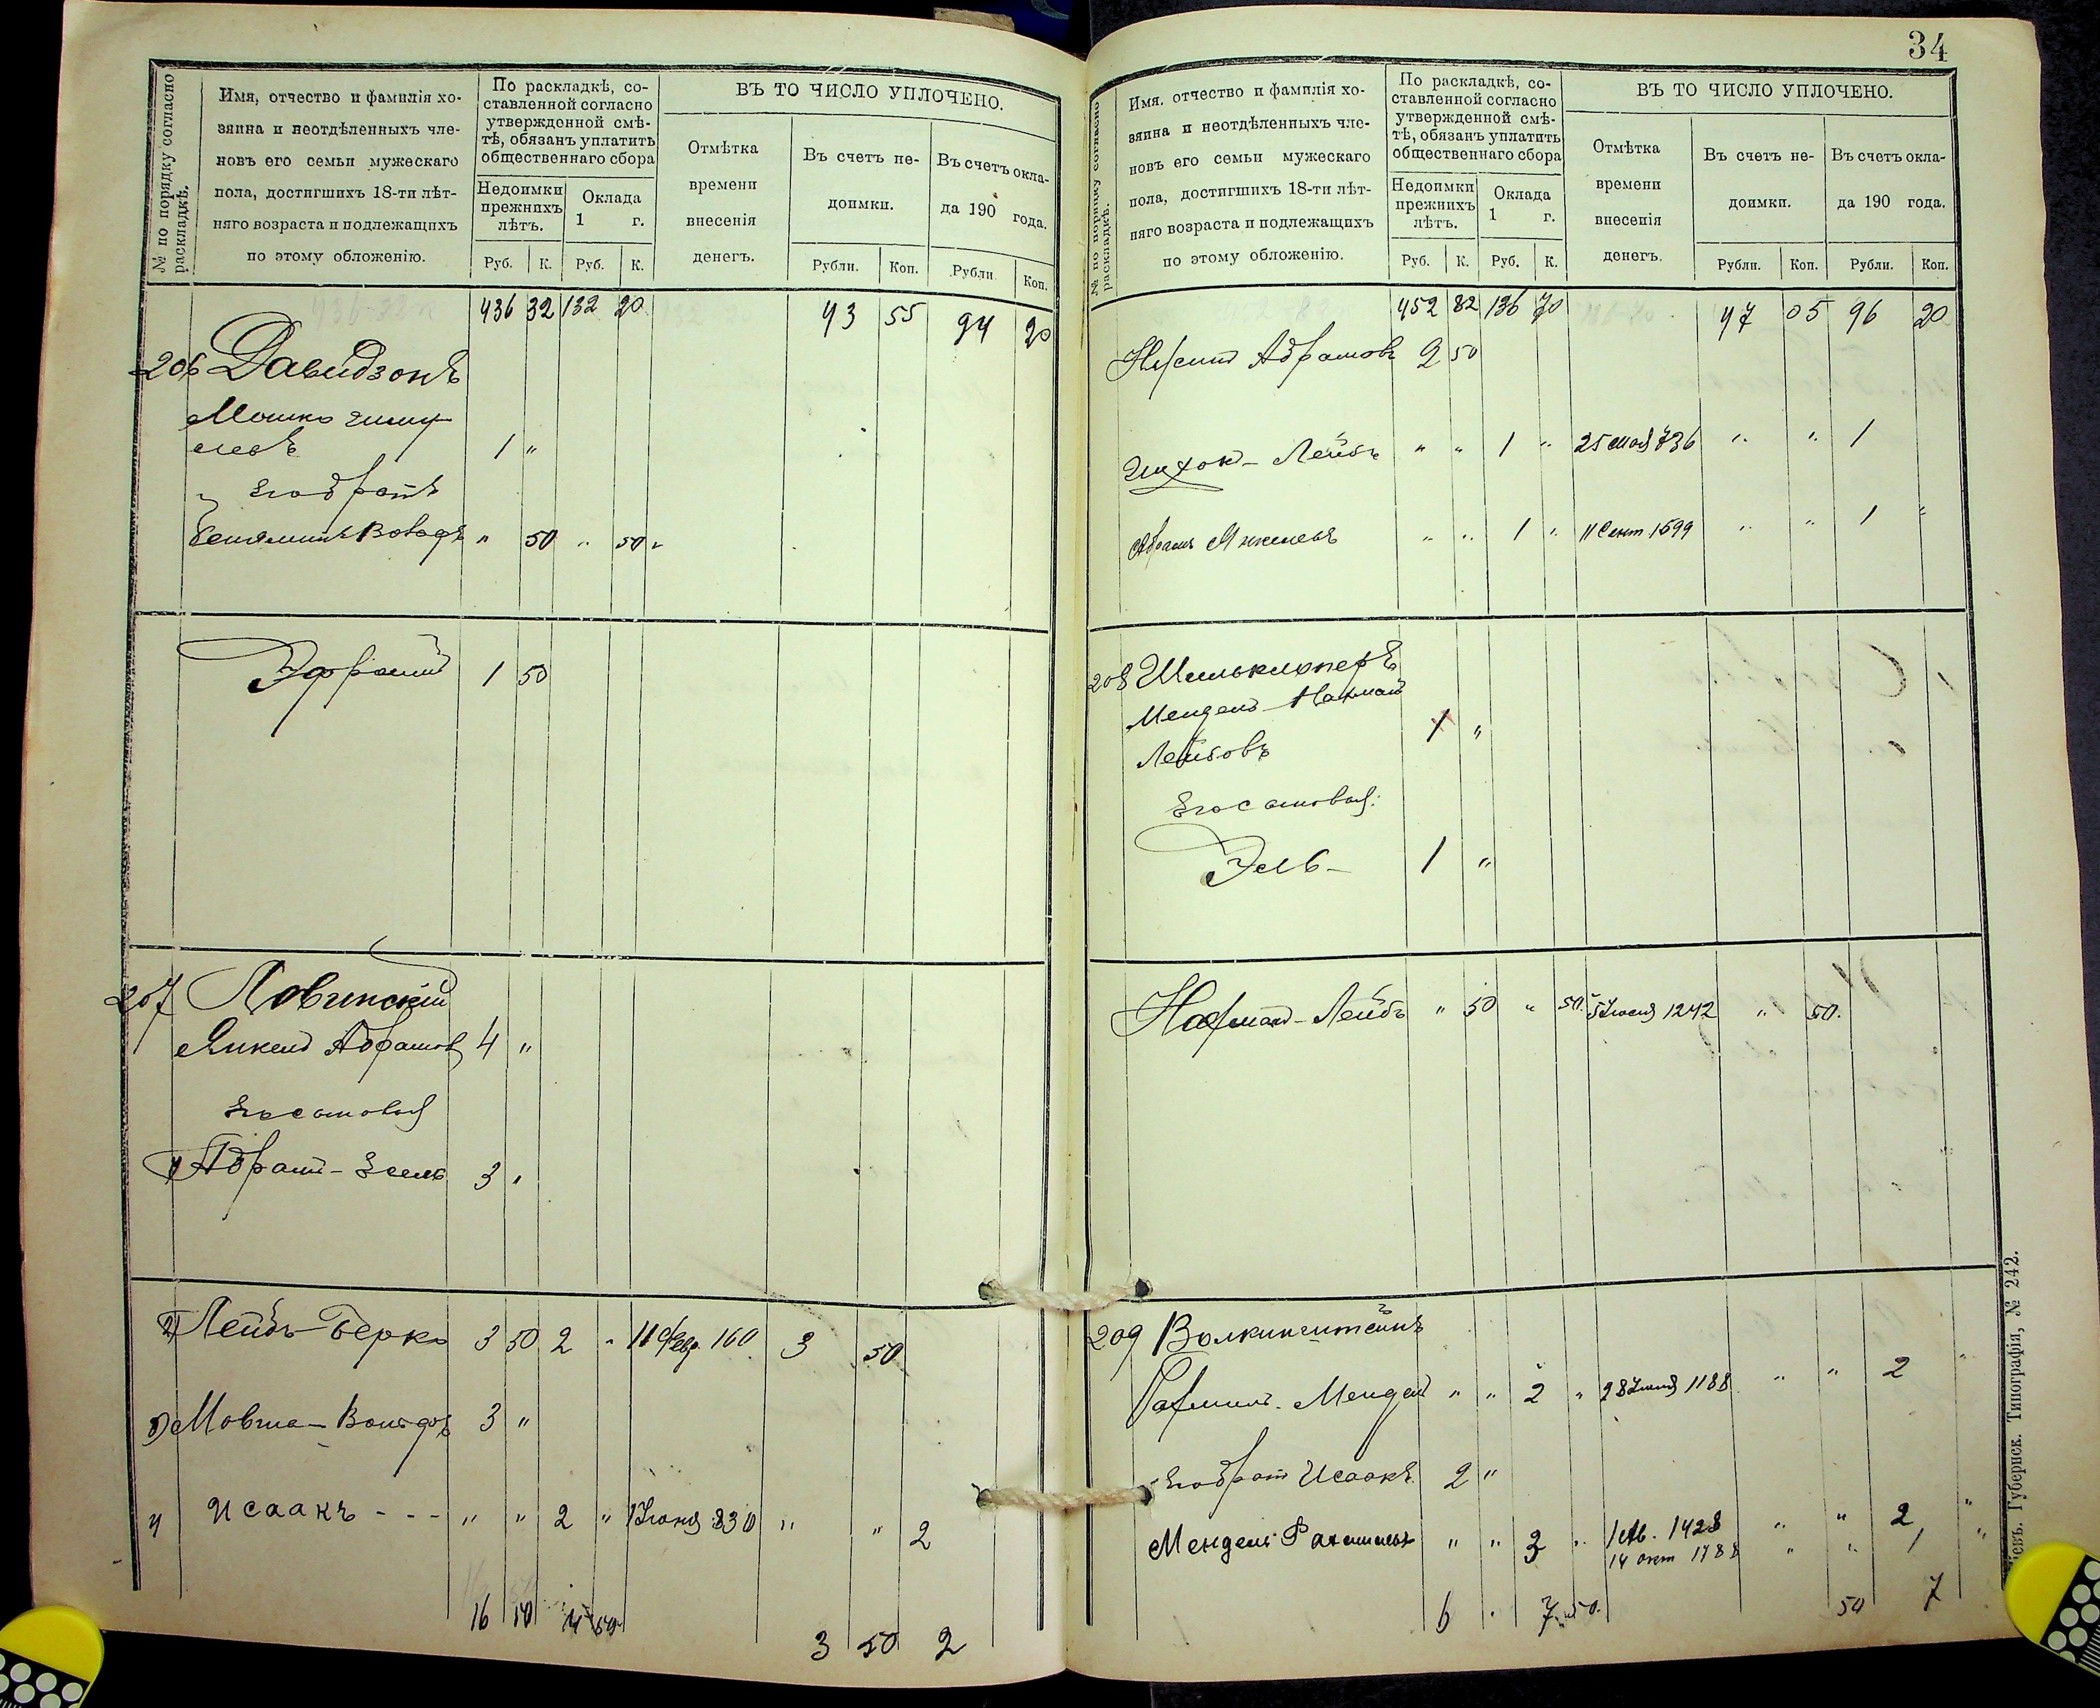 № по порядку согласно раскладкѣ.
Имя, отчество и фамилія хо-
зяина и неотдѣленныхъ чле-
новъ его семьи мужескаго
пола, достигшихъ 18-ти лѣт-
няго возраста и подлежащихъ
по этому обложенію.
По раскладкѣ, со-
ставленной согласно
утвержденной смѣ-
тѣ, обязанъ уплатить
общественнаго сбора
Недоимки
прежнихъ
лѣтъ.
Оклада
1 г.
Руб. К. Руб. К.
ВЪ ТО ЧИСЛО УПЛОЧЕНО.
Отмѣтка
времени
внесенія
денегъ.
Въ счетъ не-
доимки.
Въ счетъ окла-
да 190 года.
Рубли. Коп. Рубли. Коп.
436 32 132 20 43 55 94 20
206 Давидзонъ
Мошко
1 "
Его братъ
Беніаминъ Вольфъ " 50 " 50 "
Эфраим 1 50
207 Ловинскій
Янкель Абрамов 4 "
Его сыновья
1) Абрам - Есель 3 "
2) Лейбъ-Берко 3 50 2 " 11 Февр. 160 3 50
3) Мовша - Вольфъ 3 "
4 Исаакъ - - - " " 2 " 1 Іюня 830 " " 2
16 50 4 50 3 50 2
34
№ по порядку согласно раскладкѣ.
Имя, отчество и фамилія хо-
зяина и неотдѣленныхъ чле-
новъ его семьи мужескаго
пола, достигшихъ 18-ти лѣт-
няго возраста и подлежащихъ
по этому обложенію.
По раскладкѣ, со-
ставленной согласно
утвержденной смѣ-
тѣ, обязанъ уплатить
общественнаго сбора
Недоимки
прежнихъ
лѣтъ.
Оклада
1 г.
Руб. К. Руб. К.
ВЪ ТО ЧИСЛО УПЛОЧЕНО.
Отмѣтка
времени
внесенія
денегъ.
Въ счетъ не-
доимки.
Въ счетъ окла-
да 190 года.
Рубли. Коп. Рубли. Коп.
452 82 136 70 47 05 96 20
Абрамовъ 2 50
Ицхок - Лейбъ " " 1 " 25 мая 736 " " 1
Абрамъ Янкелевъ " " 1 " 11 Сент. 1599 " " 1 "
208 Шильклоперъ
Мендель - Нахман
Лейбовъ
1 "
Его сыновья:
Эль - 1 "
Нахман - Лейбъ " 50 " 50 5 Іюля 1242 " 50.
209 Волкинштейнъ
Рахмиль - Мендел " " 2 " 28 Іюня 1188 " " 2 "
Его брат Исаакъ 2 "
Мендель Рахмилев " " 3 " 1 Ав. 1428 " " 2 "
14 окт 1788 " " 1 "
6 . 7 50. 50 7
Губернск. Типографія, № 242.